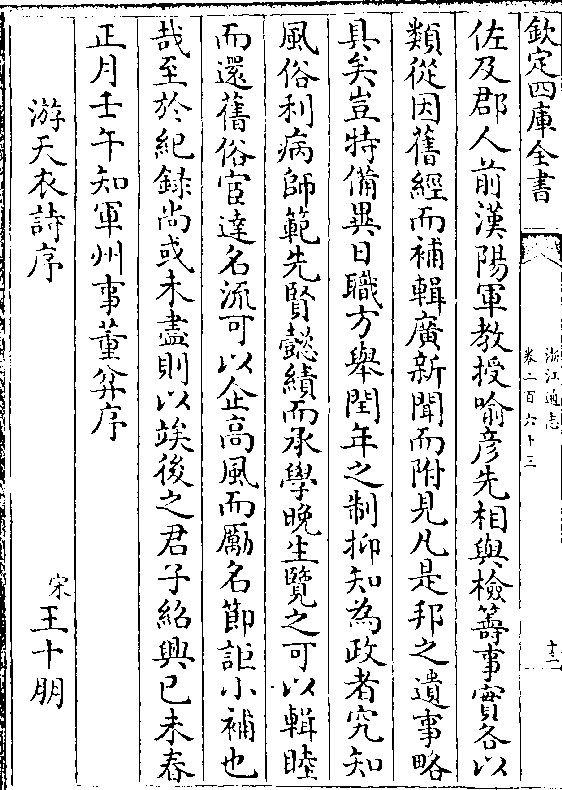 欽定四庫全書
浙江通志
卷二百六十三
十二
佐及郡人前漢陽軍教授喻彦先相與檢籌事實各以
類從因舊經而補輯廣新聞而附見凡是邦之遺事略
具矣豈特備異日職方舉閏年之制抑知為政者究知
風俗利病師範先賢懿績而承學晚生覽之可以輯睦
而還舊俗宦達名流可以企高風而勵名節詎小補也
哉至於紀録尚或未盡則以竢後之君子紹興已未春
正月壬午知軍州事董弅序
游天衣詩序
宋王十朋